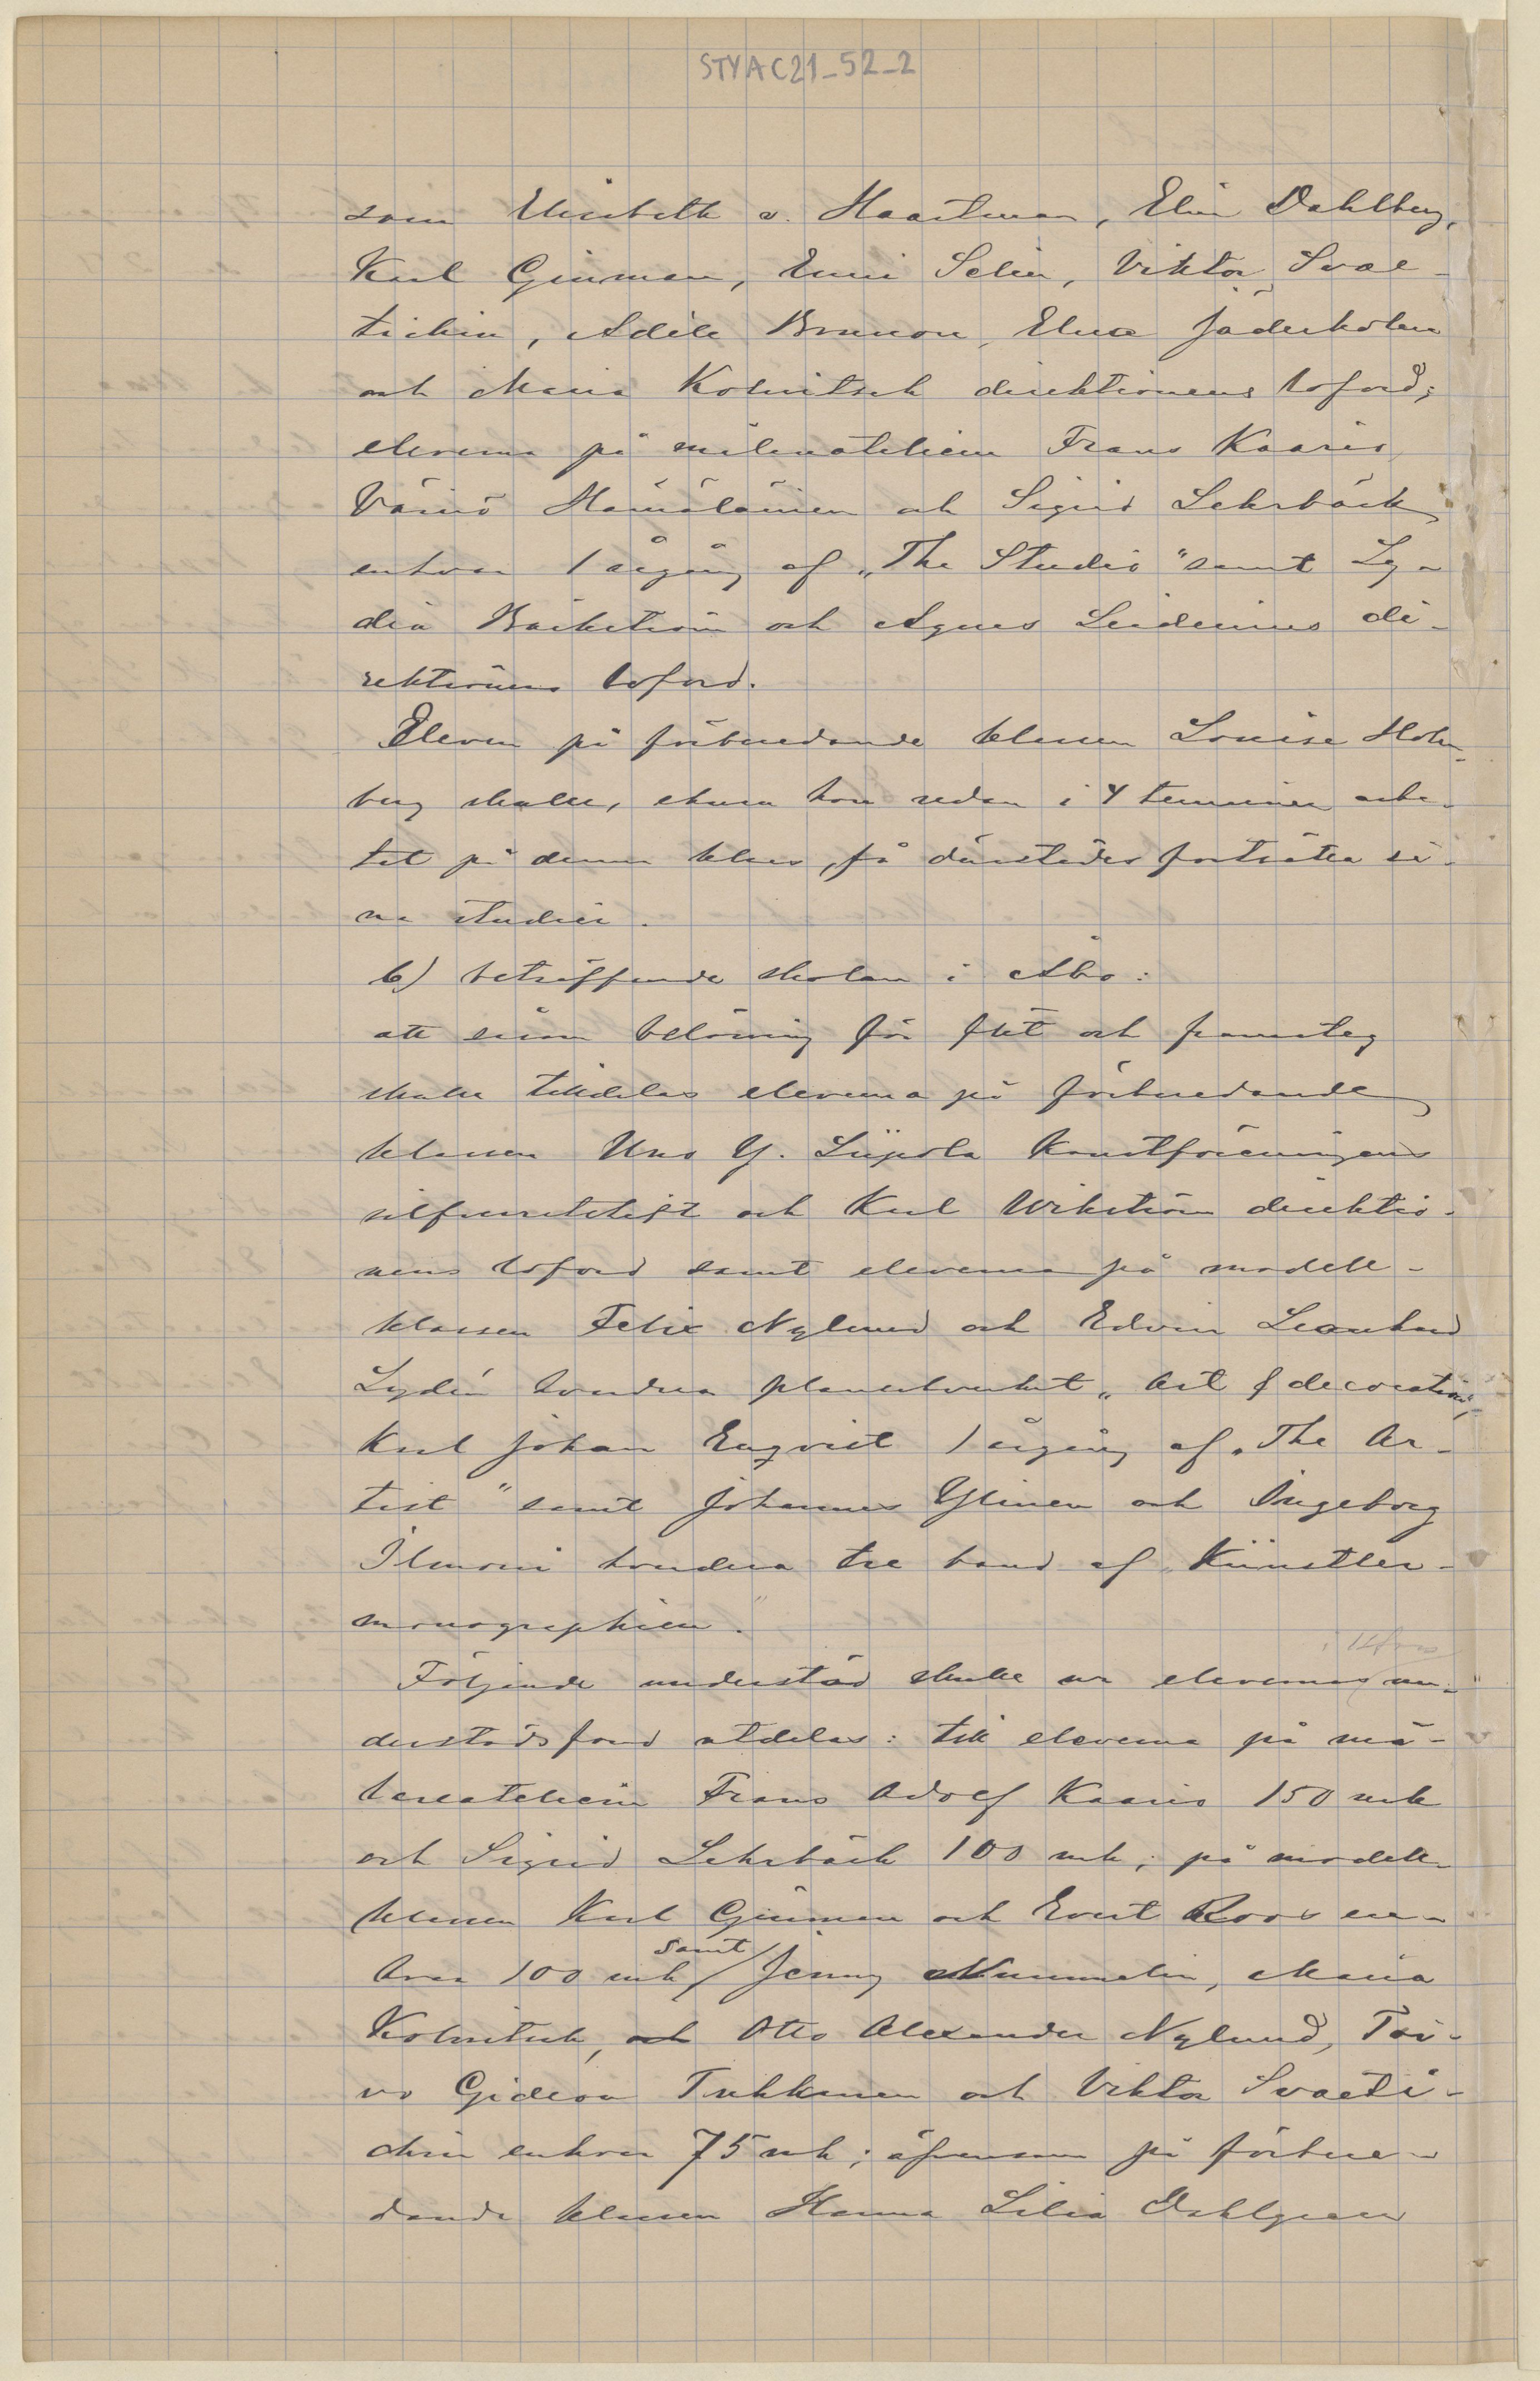 STYAC21_52_2
som Elisabeth v. Haartman, Elin Dahlberg,
Karl Ginman, Enni Selin, Viktor Svae-
tichin, Adéle Brunou, Elna Jäderholm
och Maria Kolnitsch direktionens loford;
eleverna på målareateliern Frans Kaario,
Väinö Hämäläinen och Sigrid Lehrbäck
enhvar 1 årgång af „The Studio" samt Ly-
dia Bäckström och Agnes Leidenius di-
rektionens loford.
Eleven på förberedande klassen Louise Holm-
berg skulle, ehuru hon redan i 4 terminer arbe-
tat på denna klass, få därstädes fortsätta si-
na studier.
b) beträffande skolan i Åbo:
att såsom belöning för flit och framsteg
skulle tilldelas eleverna på förberedande
klassen Uno Y. Liipola Konstföreningens
silfverstift och Karl Wikström direktio-
nens loford samt eleverna på modell-
klassen Felix Nylund och Edvin Leonhard
Lydén hvardera planschverket „Art & decoration",
Karl Johan Enqvist 1 årgång af „The Ar-
tist" samt Johannes Ylinen och Ingeborg
Ilmoni hvardera tre band af „Künstler-
monographien".
i Hfors
Följande understöd skulle ur elevernas un-
derstödsfond utdelas: till eleverna på må-
lareateliern Frans Adolf Kaario 150 mk
och Sigrid Lehrbäck 100 mk; på modell-
klassen Karl Ginman och Evert Roos en-
hvar 100 mk samt Jenny Nummelin, Maria
Kolnitsch, och Otto Alexander Nylund, Toi-
vo Gideon Tukkinen och Viktor Svaeti-
chin enhvar 75 mk; äfvensom på förbere-
dande klassen Hanna Lilia Dahlgren